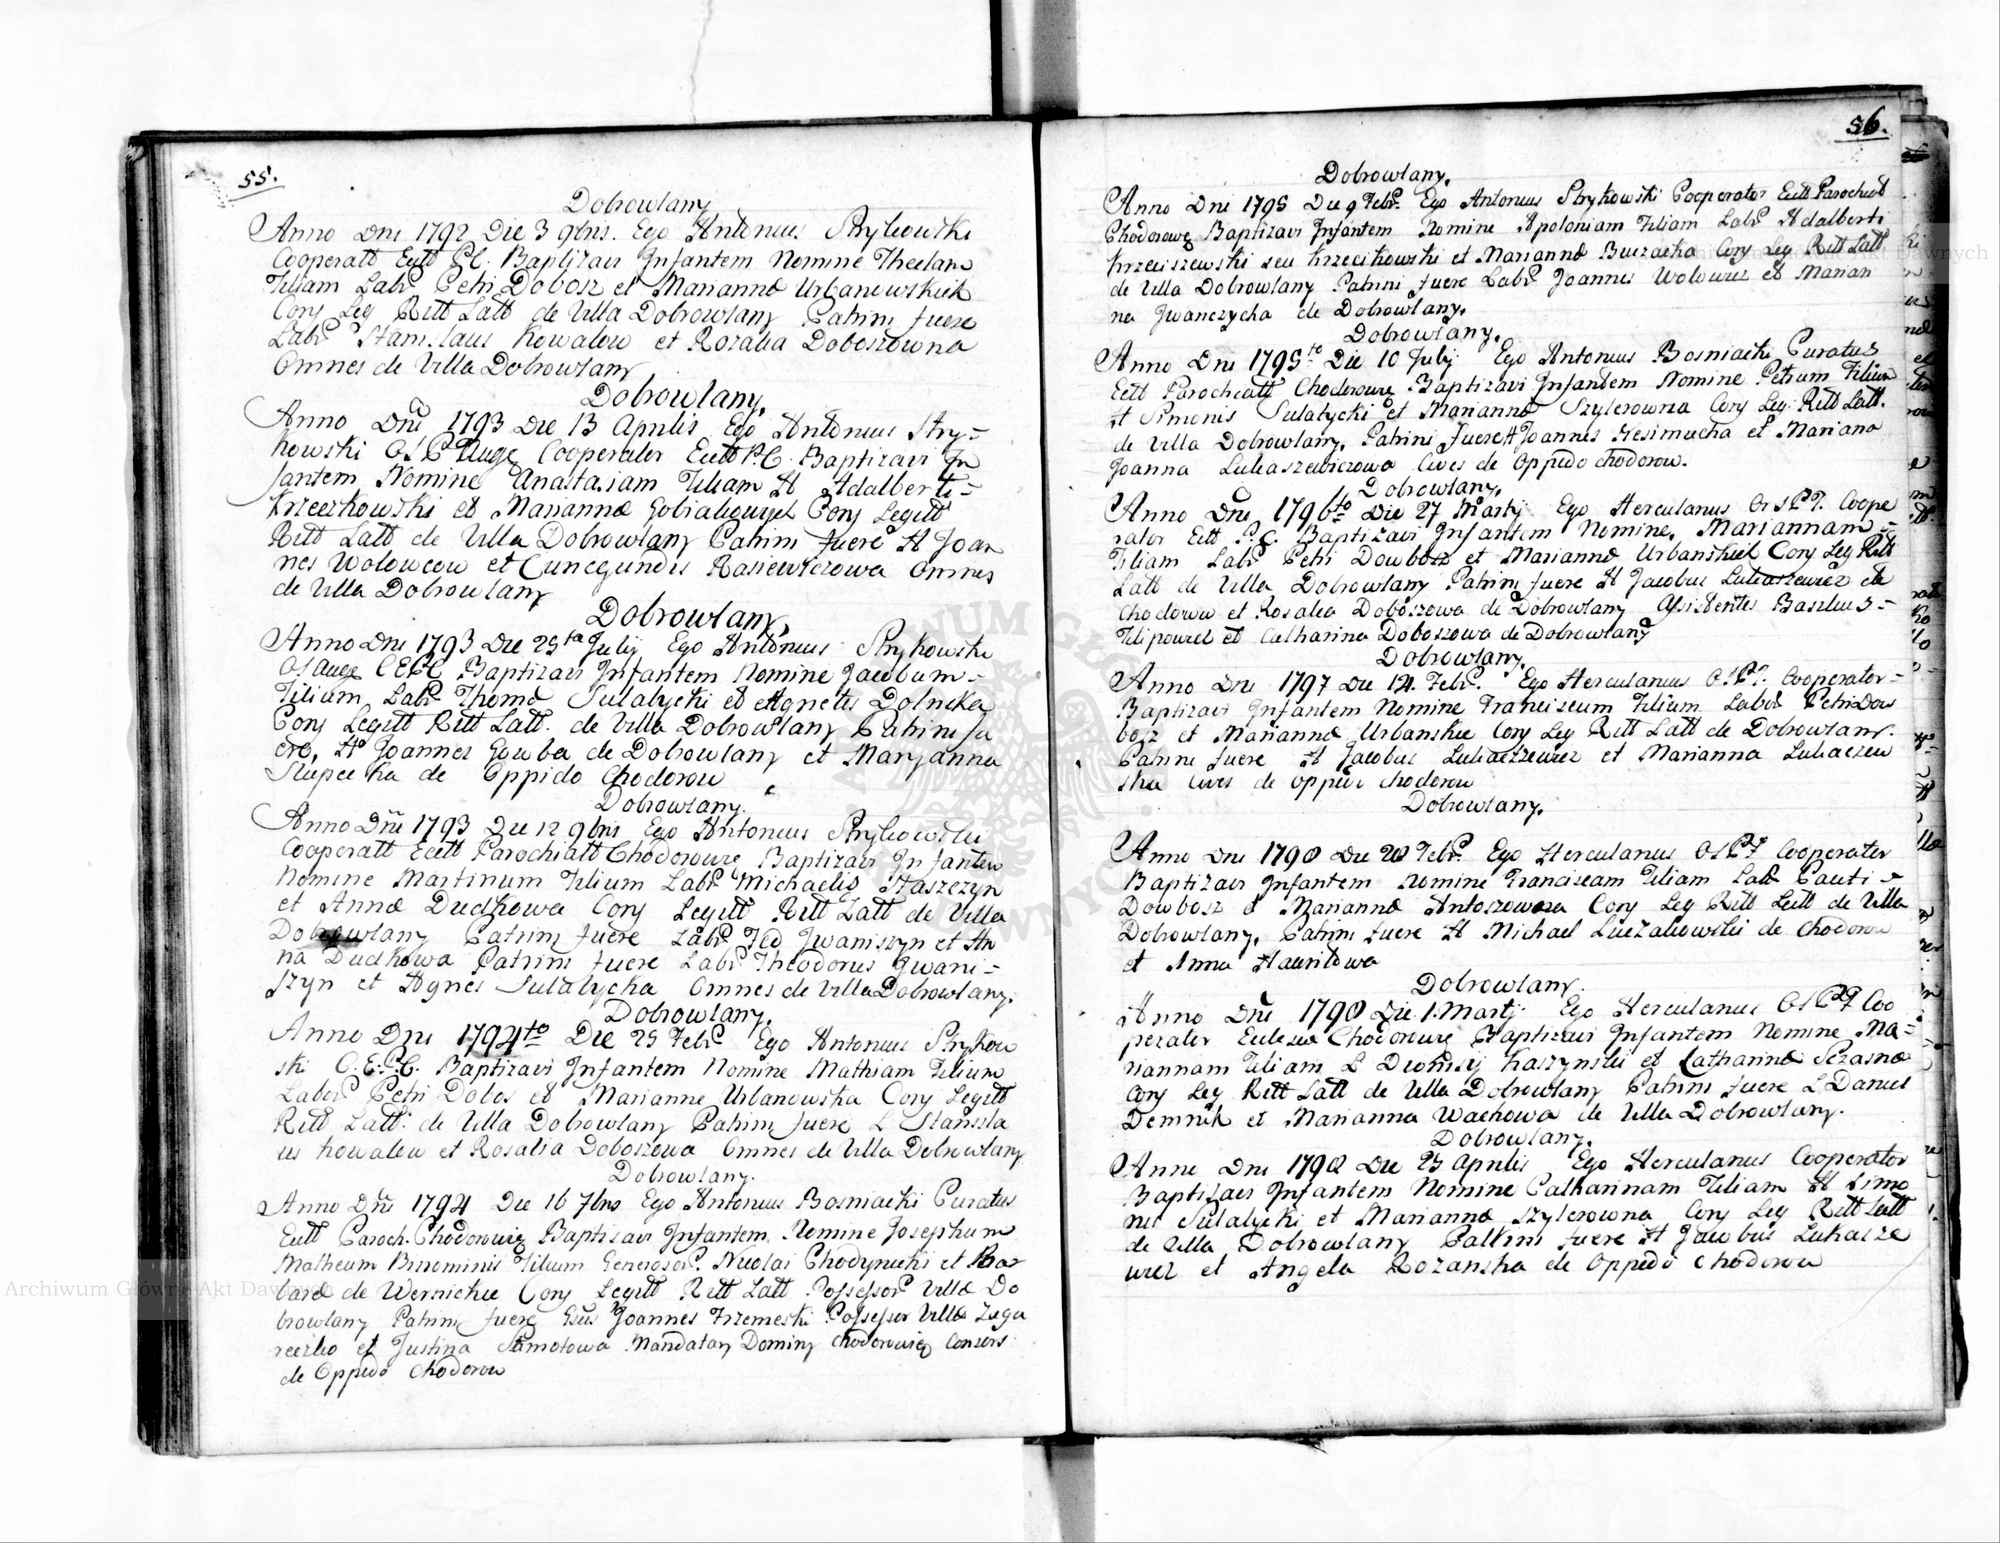 55.
Dobrowlany
Anno Dni 1792 Die 3 9bris. Ego Antonius Strykowski
Cooperatt Eccll PC. Baptizavi Infantem Nomine Theclam
Filiam Labr Petri Dobosz et Mariannæ Urbanowskich
Conj Leg Ritt Latt de Villa Dobrowlany Patrini fuere
Labr Stanislaus Kowalow et Rozalia Doboszowna
Omnes de Villa Dobrowlany
Dobrowlany.
Anno Dni 1793 Die 13 Aprilis Ego Antonius Stry=
kowski Cooperator Eccll P.C. Baptizavi In
fantem Nomine Anastasiam Filiam H Adalberti=
Krzeczkowski et Mariannæ Conj Legitt
Ritt Latt de Villa Dobrowlany Patrini fuere H Joan
nes Wolowcow et Cunegundis Rasiewiczowa Omnes
de Villa Dobrowlany
Dobrowlany.
Anno Dni 1793 Die 25ta Julij Ego Antonius Strykowski
CEPC Baptizavi Infantem Nomine Jacobum=
Filium Labr Thomæ Sulatycki et Agnetis Dolnicka
Conj Legitt Ritt Latt. de Villa Dobrowlany Patrini fu
ere, H Joannes Gowba de Dobrowlany et Maryanna
Slupecka de Oppido Chodorow
Dobrowlany.
Anno Dni 1793 Die 12 9bris Ego Antonius Strykowski
Cooperatt Eccll Parochiatt Chodorowie Baptizavi Infantem
Nomine Martinum Filium Labr Michaelis Staszczyn
et Annæ Dudkowa Conj Legitt Ritt Latt de Villa
Dobrowlany Patrini fuere Labr Fed Jwaniszyn et An
na Dudkowa Patrini fuere Labr Theodorus Jwani=
szyn et Agnes Sulatycka Omnes de Villa Dobrowlany.
Dobrowlany.
Anno Dni 1794to Die 25 Febr Ego Antonius Strykow
ski C.E.P.C. Baptizavi Infantem Nomine Mathiam Filium
Labor Petri Dobos et Marianne Urbanowska Conj Legitt
Ritt Latt: de Villa Dobrowlany Patrini fuere L Stanisla
us Kowalow et Rosalia Doboszowa Omnes de Villa Dobrowlany
Dobrowlany.
Anno Dni 1794 Die 16 7bris Ego Antonius Bosniacki Curatus
Eccll Paroch. Chodorowie Baptisavi Infantem Nomine Josephum
Matheum Binominis Filium Generosor. Nicolai Chodynicki et Bar
baræ de Wernickie Conj Legitt Ritt Latt Possessor Villæ Do
browlany Patrini fuere Joannes Trzemeski Possessor Villæ Zago
reczko et Justina Szmotowa Mandatary Dominy Chodorowieq Consors
de Oppido Chodorow
56.
Dobrowlany.
Anno Dni 1795 Die 9 Febr. Ego Antonius Strykowski Cooperator Eccll Parochiatt
Chodorowie Baptizavi Infantem Nomine Apoloniam Filiam Labr Adalberti
Krzeciszewski seu Krzecikowski et Mariannæ Buczacka Conj Leg Ritt Latt
de Villa Dobrowlany Patrini fuere Labr Joannes Wolowiez et Marian
na Jwanczycha de Dobrowlany.
Dobrowlany.
Anno Dni 1795to Die 10 Julij Ego Antonius Bosniacki Curatus
Eccll Parochiatt Chodorowie Baptizavi Infantem Nomine Petrum Filium
H Simonis Sulatycki et Mariannæ Szylerowna Conj Leg: Ritt Latt.
de Villa Dobrowlany. Patrini fuere H Joannes Hesimucha et Mariana
Joanna Lukaszewiczowa Cives de Oppido Chodorow.
Dobrowlany.
Anno Dni 1796to Die 27 Martij Ego Herculanus Coope
rator Eccll P.C. Baptizavi Infantem Nomine, Mariannam=
Filiam Labr Petri Dowbosz et Mariannæ Urbanskich Conj Leg Ritt
Latt de Villa Dobrowlany Patrini fuere H Jacobus Lukaszewicz de
Chodorow et Rosalia Doboszowa de Dobrowlany Assistentes Basilius=
Filipowicz et Catharina Doboszowa de Dobrowlany
Dobrowlany.
Anno Dni 1797 Die 12. Febr. Ego Herculanus Cooperator=
Baptizavi Infantem Nomine Franciscum Filium Labor Petri Dow
bosz et Mariannæ Urbanskie Conj Leg Ritt Latt de Dobrowlany.
Patrini fuere H Jacobus Lukaszewicz et Marianna Lukaczew
ska Cives de oppido Chodorow
Dobrowlany.
Anno Dni 1798 Die 28 Febr. Ego Herculanus Cooperator
Baptizavi Infantem Nomine Franciscam Filiam Labr Pauli=
Dowbosz et Mariannæ Antoszowcza Conj Leg Ritt Latt de Villa
Dobrowlany. Patrini fuere H Michael Luczakowski de Chodorow
et Anna Hauritowa
Dobrowlany.
Anno Dni 1798 Die 1. Martj Ego Herculanus Coo
perator Ecclesiæ Chodorowie Baptizavi Infantem Nomine Ma=
riannam Filiam L Dionisij Kaszynski et Catharinæ
Conj Leg Ritt Latt de Villa Dobrowlany Patrini fuere L Daniel
Demnik et Marianna Wachowa de Villa Dobrowlany.
Dobrowlany.
Anno Dni 1798 Die 25 Aprilis Ego Herculanus Cooperator
Baptizavi Infantem Nomine Catharinam Filiam H Simo
nis Sulatycki et Mariannæ Szylerowna Conj Leg Ritt Latt
de Villa Dobrowlany Pattrini fuere H Jacobus Lukasze
wicz et Angela Rozanska de Oppido Chodorow
Archiwum Główne Akt Dawnych